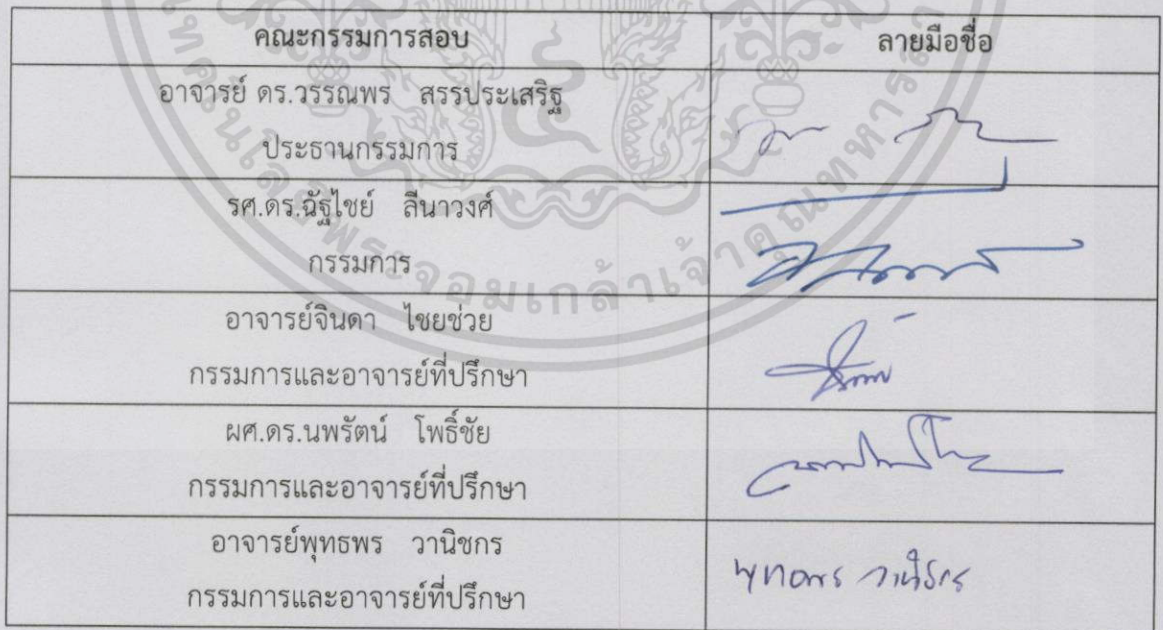 คณะกรรมการสอบ ลายมือชื่อ
อาจารย์ ดร.วรรณพร สรรประเสริฐ
ประธานกรรมการ
รศ.ดร.ฉัฐไชย์ ลีนาวงศ์
กรรมการ
อาจารย์จินดา ไชยช่วย
กรรมการและอาจารย์ที่ปรึกษา
ผศ.ดร.นพรัตน์ โพธิ์ชัย
กรรมการและอาจารย์ที่ปรึกษา
อาจารย์พุทธพร วานิชกร
กรรมการและอาจารย์ที่ปรึกษา
พุทธพร วานิชกร
พระจอมเกล้าเจ้าคุณทหารลา